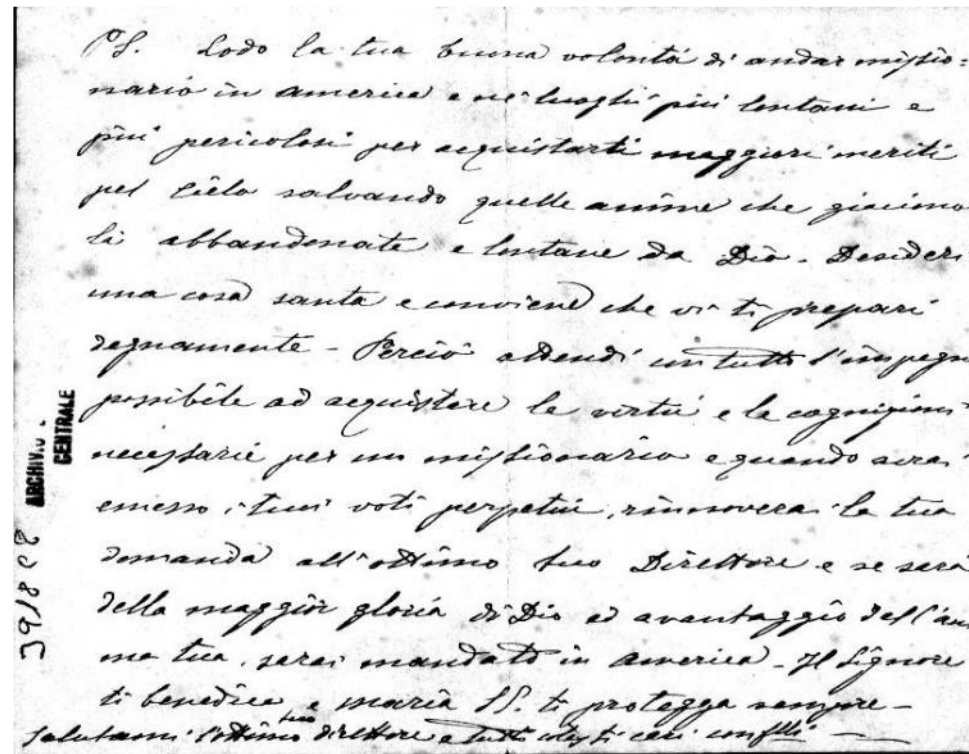 PS. Lodo la tua buona volontà di andar missio=
nario in america e nei luoghi più lontani e
più pericolosi per acquistarti maggiori meriti
pel Cielo salvando quelle anime che giaciono
là abbandonate e lontane da Dio. Desideri
una cosa santa e conviene che vi ti prepari
degnamente - Perciò attendi con tutto l'impegno
possibile ad acquistare le virtù e le cognizioni
necessarie per un missionario e quando avrai
emesso i tuoi voti perpetui, rinnoverai la tua
domanda all'ottimo tuo Direttore e se sarà
della maggior gloria di Dio ed avantaggio dell'ani
ma tua, sarai mandato in america - Il Signore
ti benedica e Maria SS. ti protegga sempre -
Salutami l'ottimo tuo direttore e tutti cari
ARCHIVIO
CENTRALE